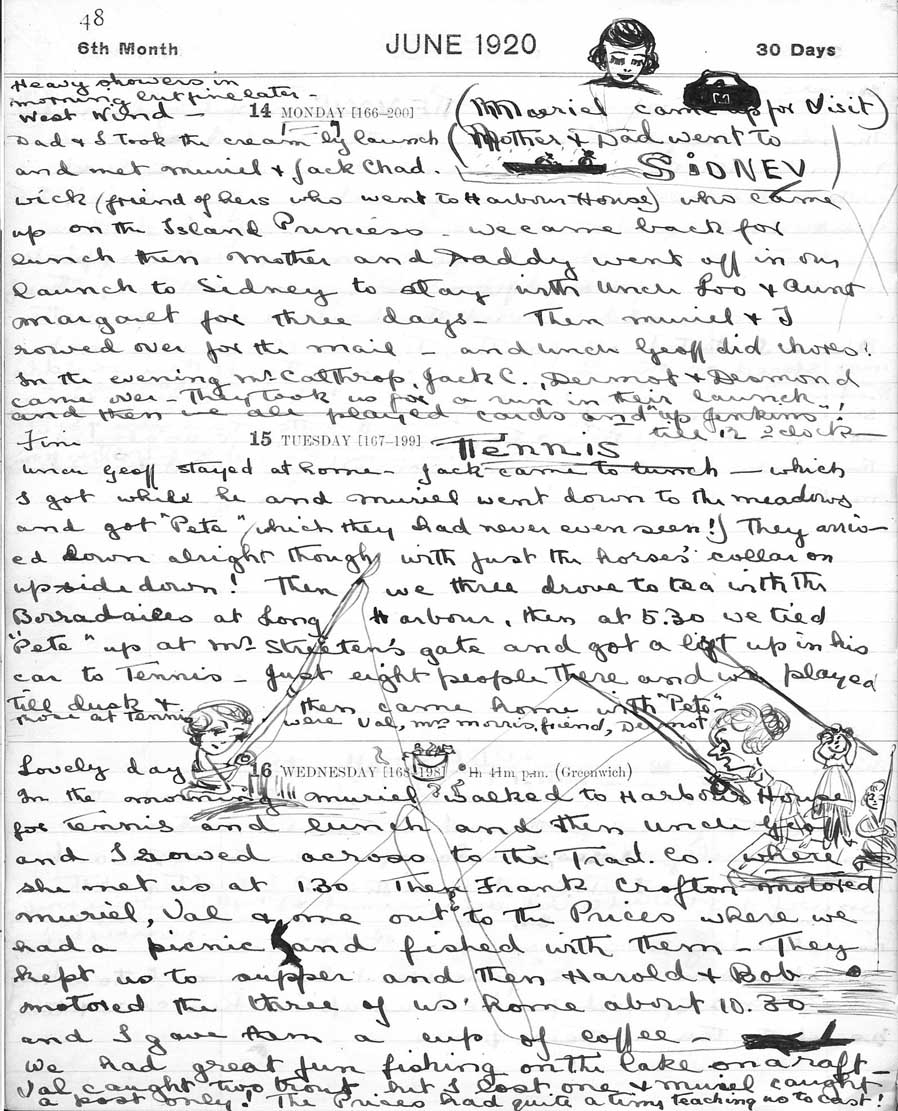 48
6th Month
JUNE 1920
30 Days
Heavy showers in
morning but fine later -
West Wind -
14 MONDAY [166-200]
(Muriel came up for Visit)
M
(Mother & Dad went to
SiDNEY
Dad & I took the cream by launch
and met muriel & Jack Chad.
wick (friend of hers who went to Harbour House) who came
up on the Island Princess - we came back for
lunch then mother and Daddy went off in our
launch to Sidney to stay with Uncle Loo & Aunt
margaret for three days - Then muriel & I
rowed over for the mail - and uncle Geoff did chores!
In the evening Mr Calthrop, Jack C., Dermot & Desmond
came over - They took us for a run in their launch
and then we all played cards and "up Jenkins"!
till 12 oclock
Fine
15 TUESDAY [167-199]
TENNIS
Uncle Geoff stayed at home - Jack came to lunch - which
I got while he and muriel went down to the meadows
and got "Pete" (which they had never even seen!) They arriv-
ed down alright though with just the horse's collar on
upside down! Then we three drove to tea with the
Borradailes at Long Harbour, then at 5.30 we tied
"Pete" up at Mr Streeten's gate and got a lift up in his
car to Tennis - Just eight people there and we played
till dusk & then came home with "Pete"
those at tennis were Val, Mrs morris, friend, Dermot
Lovely day
16 WEDNESDAY [168-198]
1h 41m p.m. (Greenwich)
In the morning muriel walked to Harbour House
for tennis and lunch and then uncle Geoff
and I rowed across to the Trad. Co. where
she met us at 1.30 Then Frank Crofton motored
muriel, Val & me out to the Prices where we
had a picnic and fished with them - They
kept us to supper and then Harold & Bob
motored the three of us home about 10.30
and I gave them a cup of coffee -
we had great fun fishing on the lake on a raft -
Val caught two trout but I lost one & muriel caught
a post only! The Prices had quite a time teaching us to cast!